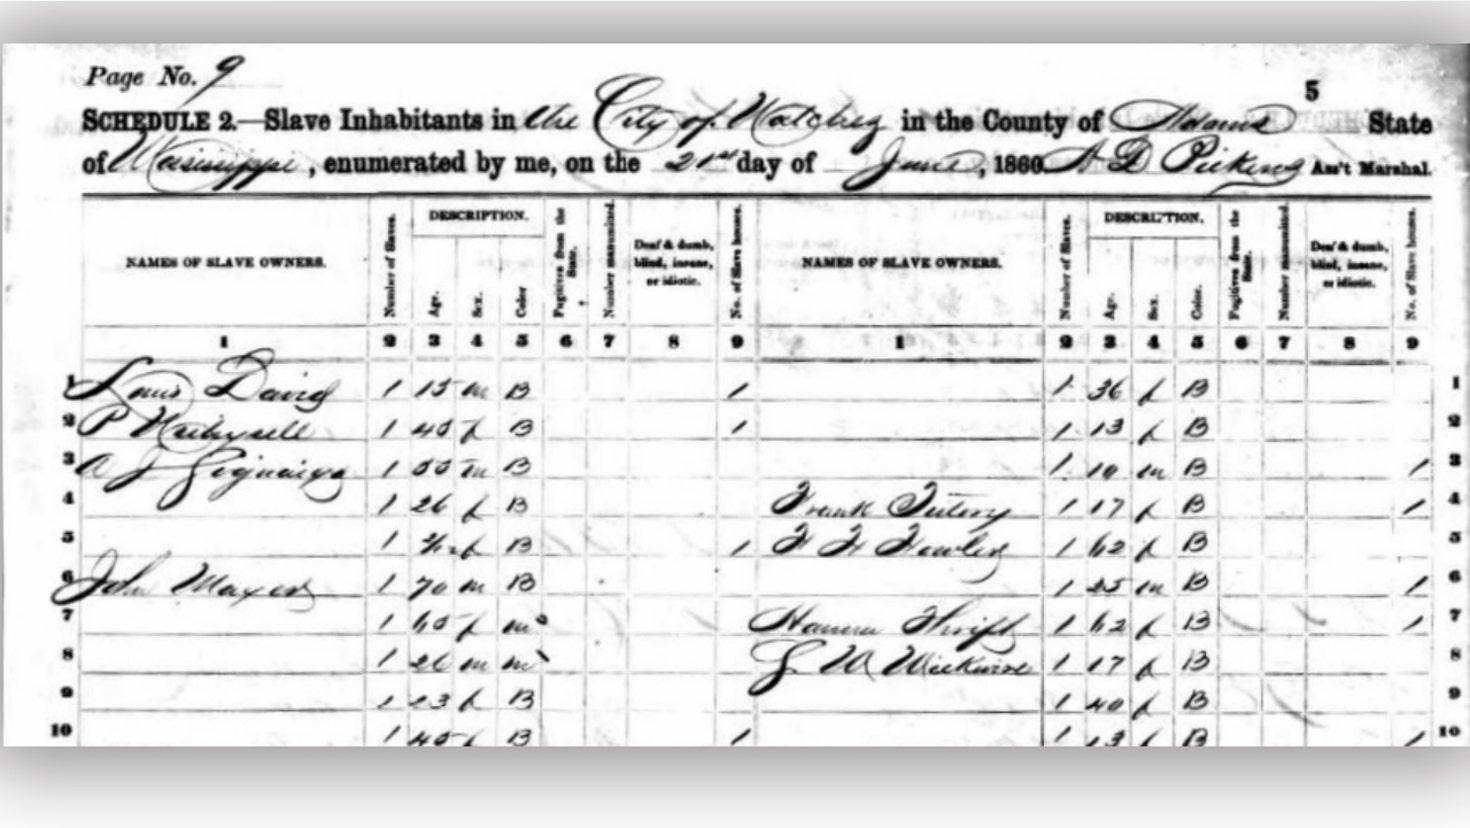 Page No. 9
5
SCHEDULE 2.—Slave Inhabitants in the City of Natchez in the County of Adams State
of Missisippi, enumerated by me, on the 21st day of June, 1860. A D Pickens Ass't Marshal.
NAMES OF SLAVE OWNERS. Number of Slaves. DESCRIPTION. Age. Sex. Color Fugitives from the State. Number manumitted. Deaf & dumb, blind, insane, or idiotic. No. of Slave houses. NAMES OF SLAVE OWNERS. Number of Slaves. DESCRIPTION. Age. Sex. Color. Fugitives from the State. Number manumitted. Deaf & dumb, blind, insane, or idiotic. No. of Slave houses.
1 2 3 4 5 6 7 8 9 1 2 3 4 5 6 7 8 9
1 Louis David 1 15 m B 1 1 36 f B 1
2 P 1 45 f B 1 1 13 f B 2
3 A J 1 55 m B 1 10 m B 1 3
4 1 26 f B Frank 1 17 f B 1 4
5 1 f B 1 1 62 f B 5
6 John Mayers 1 70 m B 1 25 m B 1 6
7 1 65 f m Thrift 1 62 f B 1 7
8 1 26 m m W Wickwire 1 17 f B 8
9 1 23 f B 1 40 f B 9
10 1 45 f B 1 1 13 f B 1 10